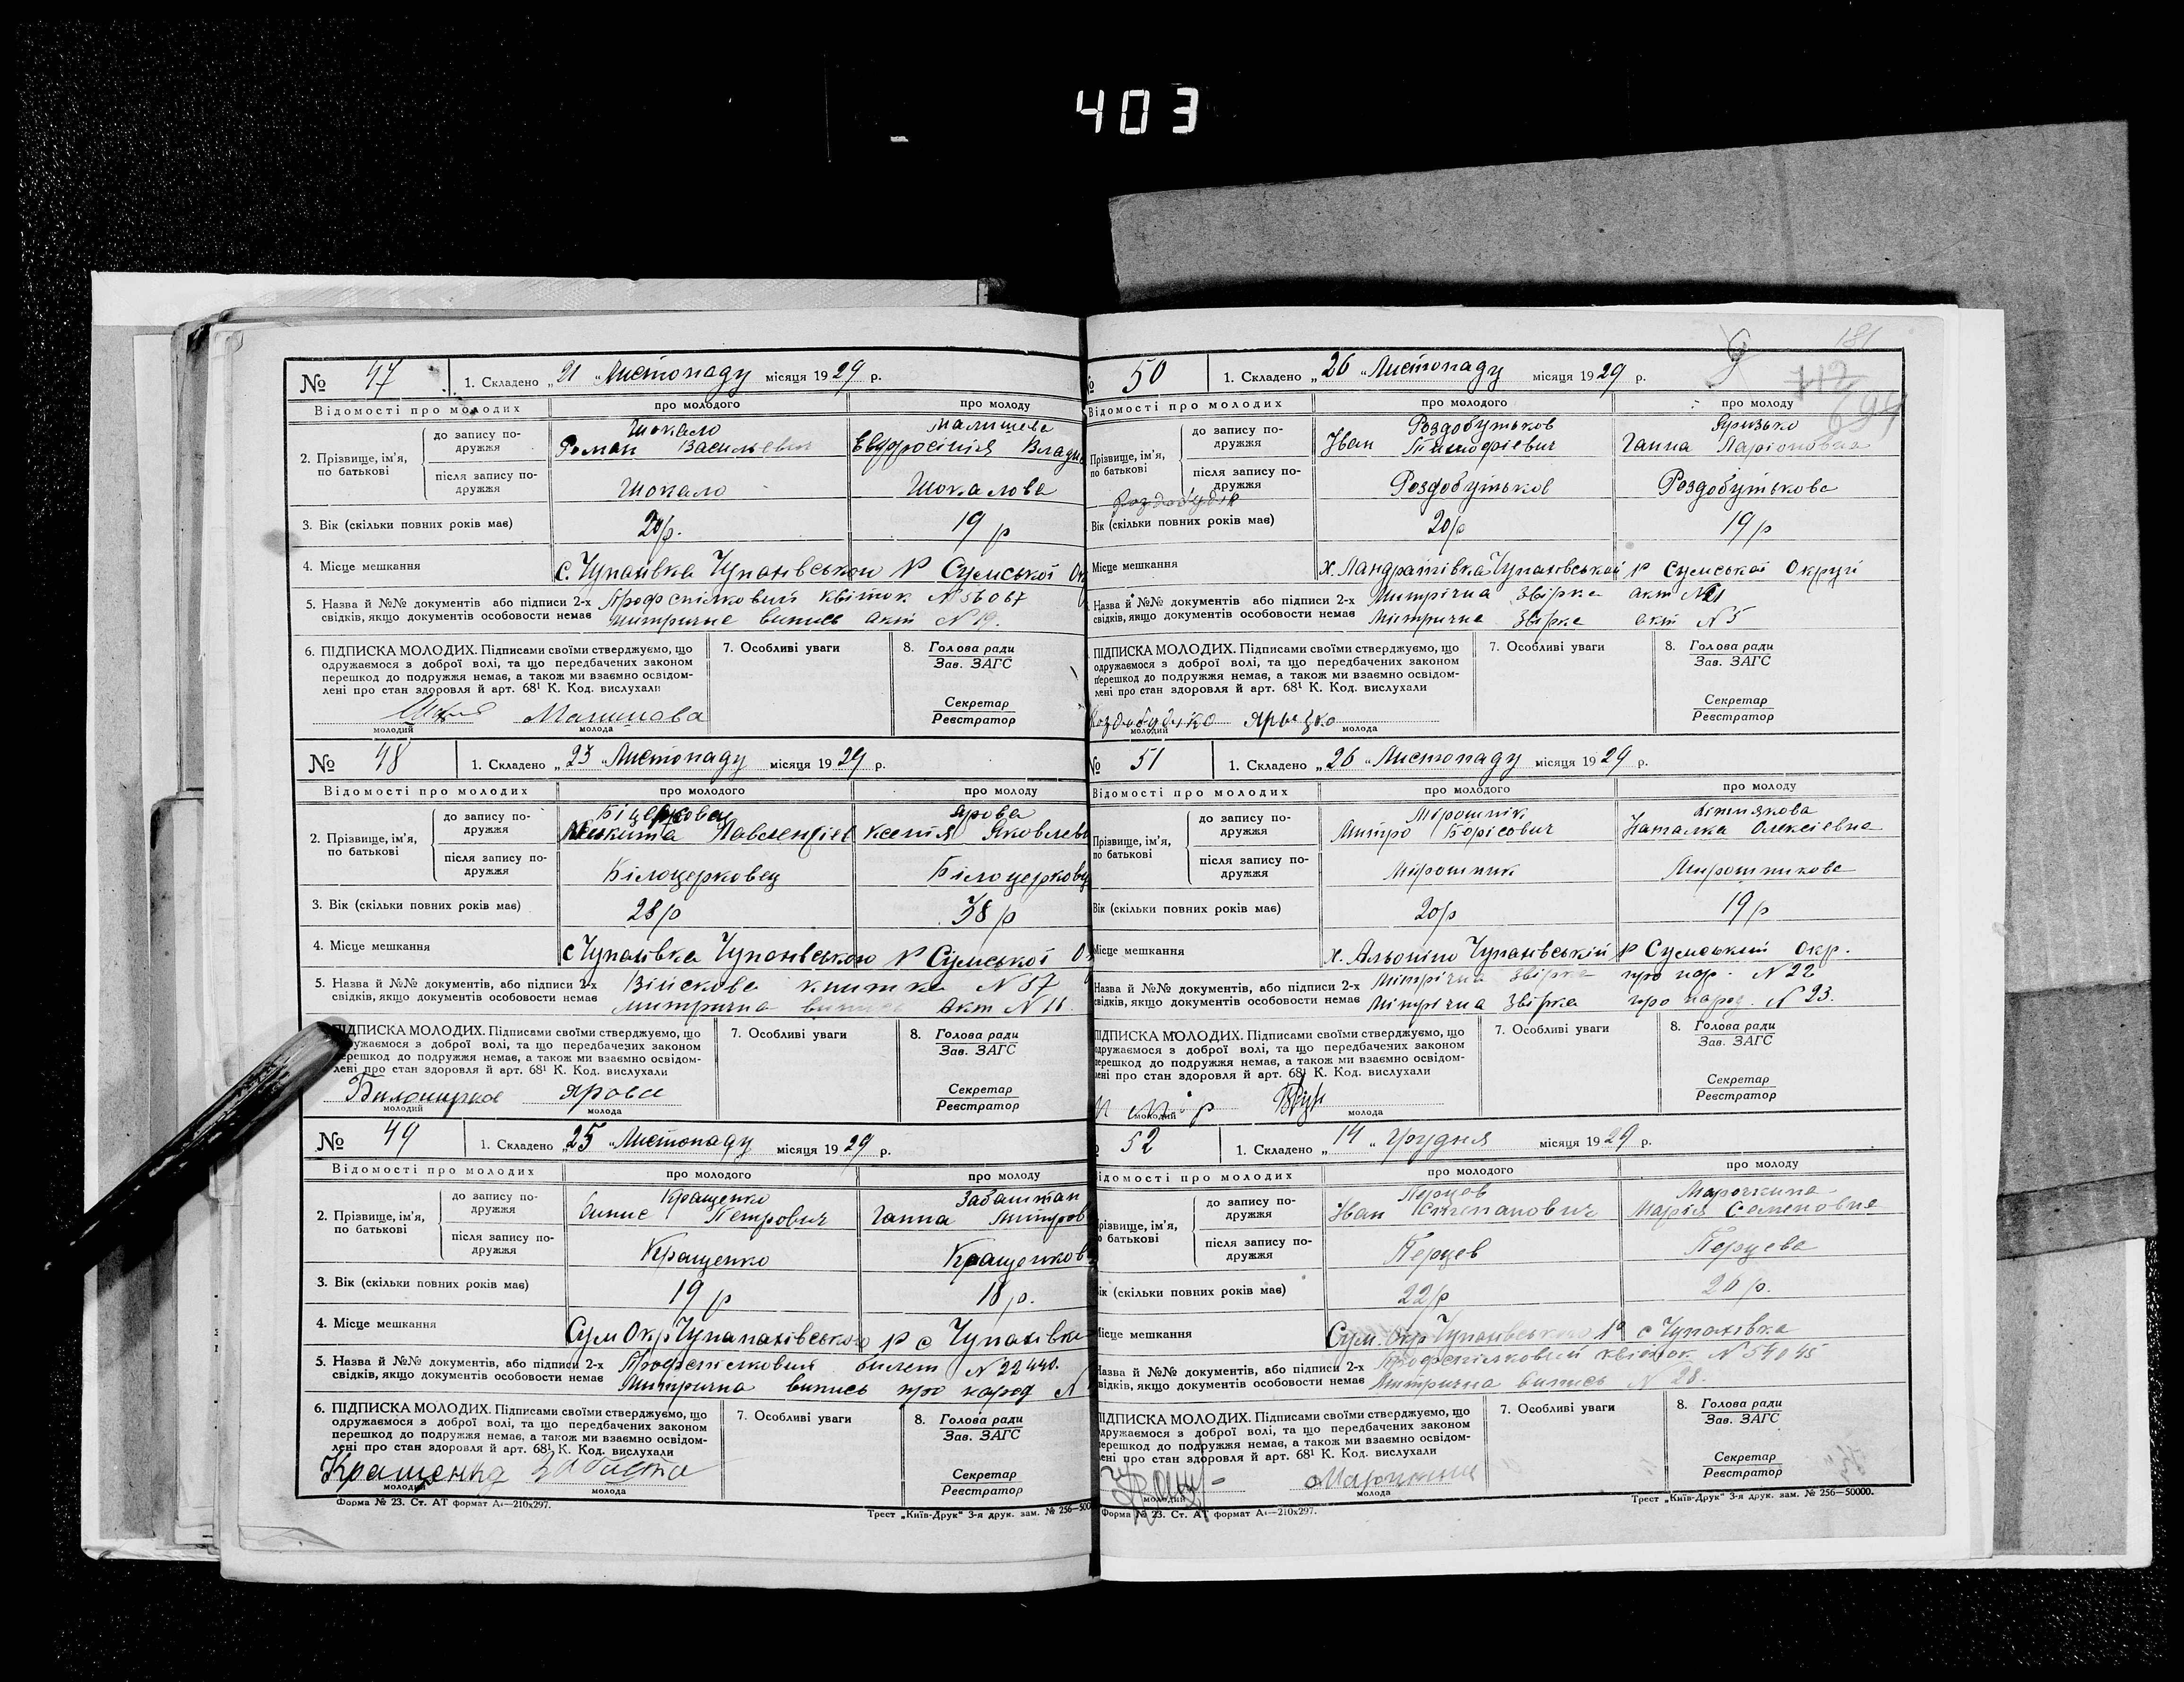 403
№ 47 1. Складено „21 „Листопаду місяця 1929 р.
Відомості про молодих про молодого про молоду
2. Прізвище, ім'я, по батькові
до запису по-
дружжя
Шокало Малишева
Роман Васильевич Евдросінія Влади
після запису по-
дружжя
Шокало Шокалова
3. Вік (скільки повних років має) 20р. 19 р
4. Місце мешкання с. Чупахівка Чупахівського Р Сумської Ок
5. Назва й №№ документів або підписи 2-х Профспілковий квіток N 56067
свідків, якщо документів особовости немає Митрична випись акт N 19.
6. ПІДПИСКА МОЛОДИХ. Підписами своїми стверджуємо, що
одружаємося з доброї волі, та що передбачених законом
перешкод до подружжя немає, а також ми взаємно освідом-
лені про стан здоровля й арт. 68¹ К. Код. вислухали
7. Особливі уваги
8. Голова ради
Зав. ЗАГС
Секретар
Реєстратор
молодий молода
№ 48 1. Складено „23 „Листопаду місяця 1929 р.
Відомості про молодих про молодого про молоду
2. Прізвище, ім'я, по батькові
до запису по-
дружжя
Ярова
Микита Павлентієв Ксенія Яковлевн
після запису по-
дружжя
Білоцерковец Білоцерковц
3. Вік (скільки повних років має) 28р 38 р
4. Місце мешкання с Чупахівка Чупахівського Р Сумської О
5. Назва й №№ документів, або підписи 2-х Війскова книжка N 57
свідків, якщо документів особовости немає митрична випись Акт N 11.
ПІДПИСКА МОЛОДИХ. Підписами своїми стверджуємо, що
одружаємося з доброї волі, та що передбачених законом
перешкод до подружжя немає, а також ми взаємно освідом-
лені про стан здоровля й арт. 68¹ К. Код. вислухали
7. Особливі уваги
8. Голова ради
Зав. ЗАГС
Секретар
Реєстратор
Ярова
молодий молода
№ 49 1. Складено „25 „Листопаду місяця 1929 р.
Відомості про молодих про молодого про молоду
2. Прізвище, ім'я, по батькові
до запису по-
дружжя
Кращенко Забаштан
Петрович Ганна Митров
після запису по-
дружжя
Кращенко Кращенков
3. Вік (скільки повних років має) 19 р 18 р.
4. Місце мешкання Сум Окр Чупапахівського Р с Чупахівка
5. Назва й №№ документів, або підписи 2-х Профспілковий билет N 22440.
свідків, якщо документів особовости немає Митрична випись про народ N
6. ПІДПИСКА МОЛОДИХ. Підписами своїми стверджуємо, що
одружаємося з доброї волі, та що передбачених законом
перешкод до подружжя немає, а також ми взаємно освідом-
лені про стан здоровля й арт. 68¹ К. Код. вислухали
7. Особливі уваги
8. Голова ради
Зав. ЗАГС
Секретар
Реєстратор
Кращенко
молодий молода
Форма № 23. Ст. АТ формат А4—210x297. Трест „Київ-Друк" 3-я друк. зам. № 256—500
181
694
50 1. Складено „26 „Листопаду місяця 1929 р.
Відомості про молодих про молодого про молоду
Прізвище, ім'я, по батькові
до запису по-
дружжя
Роздобутьков Яризько
Іван Тимофієвич Ганна Ларіоновна
після запису по-
дружжя
Роздобутьков Роздобутькова
Вік (скільки повних років має) 20р 19р
Місце мешкання х. Ландратівка Чупахівськай Р Сумськой Округі
Назва й №№ документів або підписи 2-х Митрічна Звірка акт N 21
свідків, якщо документів особовости немає Митрична Звірка акт N 5
ПІДПИСКА МОЛОДИХ. Підписами своїми стверджуємо, що
одружаємося з доброї волі, та що передбачених законом
перешкод до подружжя немає, а також ми взаємно освідом-
лені про стан здоровля й арт. 68¹ К. Код. вислухали
7. Особливі уваги
8. Голова ради
Зав. ЗАГС
Секретар
Реєстратор
Роздобудько Ярызко
молодий молода
№ 51 1. Складено „26 „Листопаду місяця 1929 р.
Відомості про молодих про молодого про молоду
Прізвище, ім'я, по батькові
до запису по-
дружжя
Мірошнік Вітнякова
Митро Борісович Наталка Олексіевна
після запису по-
дружжя
Мирошник Мирошникова
Вік (скільки повних років має) 20р 19 р
Місце мешкання х. Альошино Чупахівській Р Сумський Окр.
Назва й №№ документів, або підписи 2-х Митрічна Звірка про нар. N 22
свідків, якщо документів особовости немає Митрічна Звірка про народ. N 23.
ПІДПИСКА МОЛОДИХ. Підписами своїми стверджуємо, що
одружаємося з доброї волі, та що передбачених законом
перешкод до подружжя немає, а також ми взаємно освідом-
лені про стан здоровля й арт. 68¹ К. Код. вислухали
7. Особливі уваги
8. Голова ради
Зав. ЗАГС
Секретар
Реєстратор
молодий молода
52 1. Складено „14 „Грудня місяця 1929 р.
Відомості про молодих про молодого про молоду
Прізвище, ім'я, по батькові
до запису по-
дружжя
Перцов Марочкина
Іван Степанович Марія Семеновна
після запису по-
дружжя
Перцев Перцева
Вік (скільки повних років має) 22р 20 р.
Місце мешкання Сум. Окр Чупахівського Р с Чупахівка
Назва й №№ документів, або підписи 2-х Профспілковый квіток N 54045
свідків, якщо документів особовости немає Митрична випись N 28.
ПІДПИСКА МОЛОДИХ. Підписами своїми стверджуємо, що
одружаємося з доброї волі, та що передбачених законом
перешкод до подружжя немає, а також ми взаємно освідом-
лені про стан здоровля й арт. 68¹ К. Код. вислухали
7. Особливі уваги
8. Голова ради
Зав. ЗАГС
Секретар
Реєстратор
молодий молода
Форма № 23. Ст. АТ формат А4—210x297. Трест „Київ-Друк" 3-я друк. зам. № 256—50000.